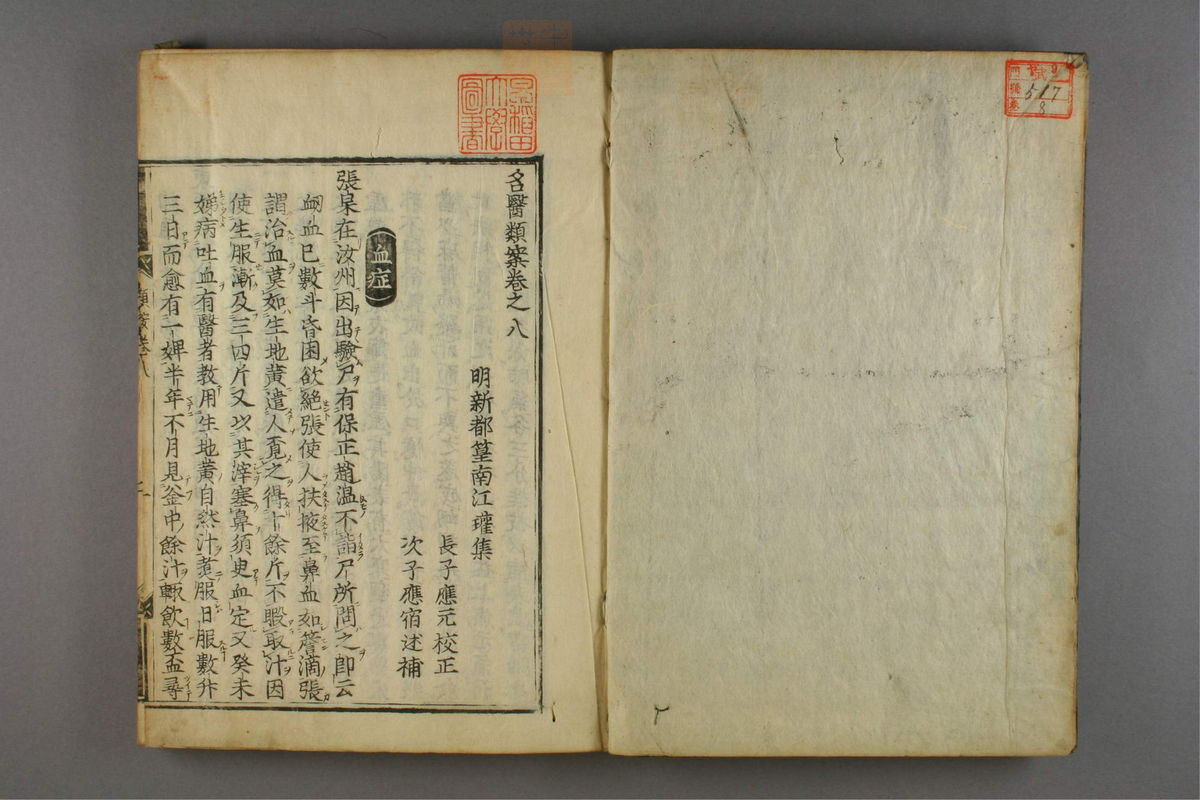 名醫類案卷之八
明新都篁南江瓘集
長子應元校正
次子應宿述補
血症
張杲在汝州因出驗尸有保正趙温不詣尸所問之即云
衂血已數斗昏困欲絶張使人扶掖至鼻血如簷滴張
謂治血莫如生地黄遣人覔之得十餘斤不暇取汁因
使生服漸及三四斤又以其滓塞鼻須臾血定又癸未
娣病吐血有醫者教用生地黄自然汁煑服日服數升
三日而愈有一婢半年不月見釜中餘汁輙飲數盃尋
類案卷八
早稲田大學圖書
517
8